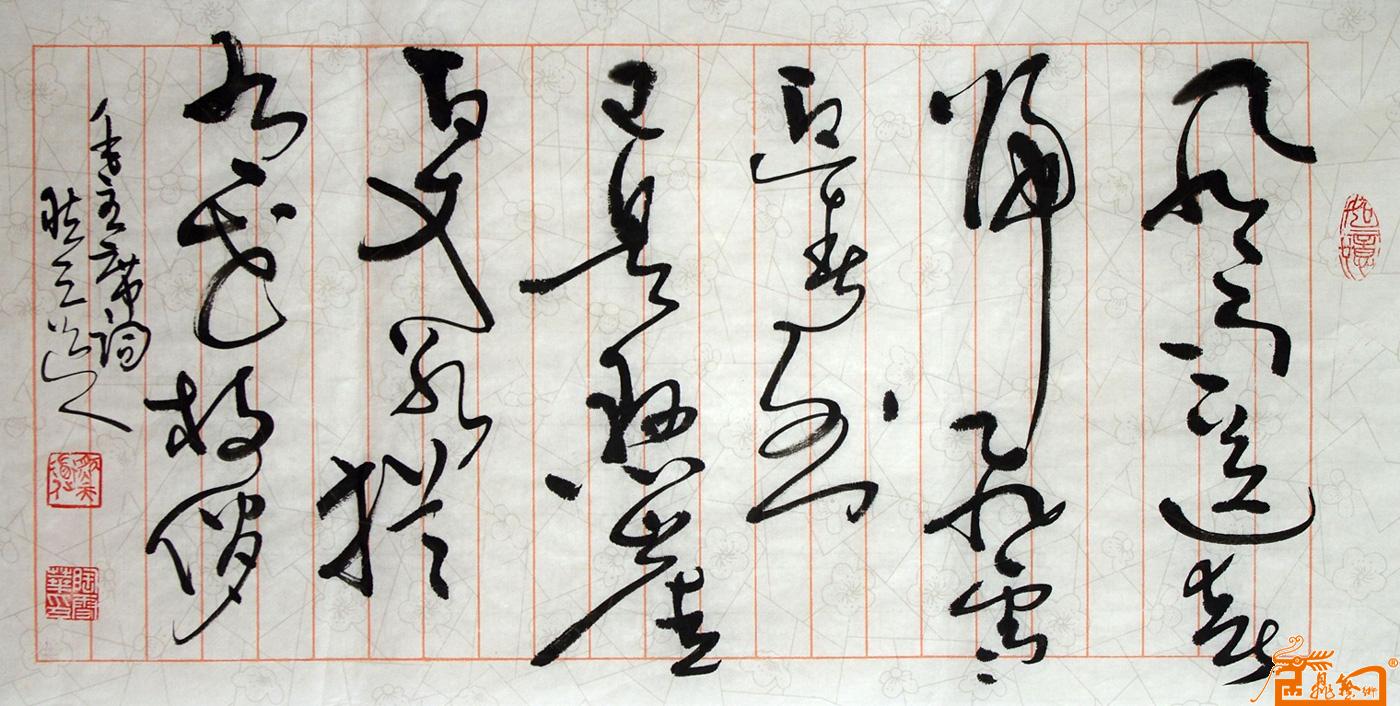 风雨送春
归飞雪
迎春到
已是悬崖
百丈冰犹
有花枝俏
毛主席词
如意